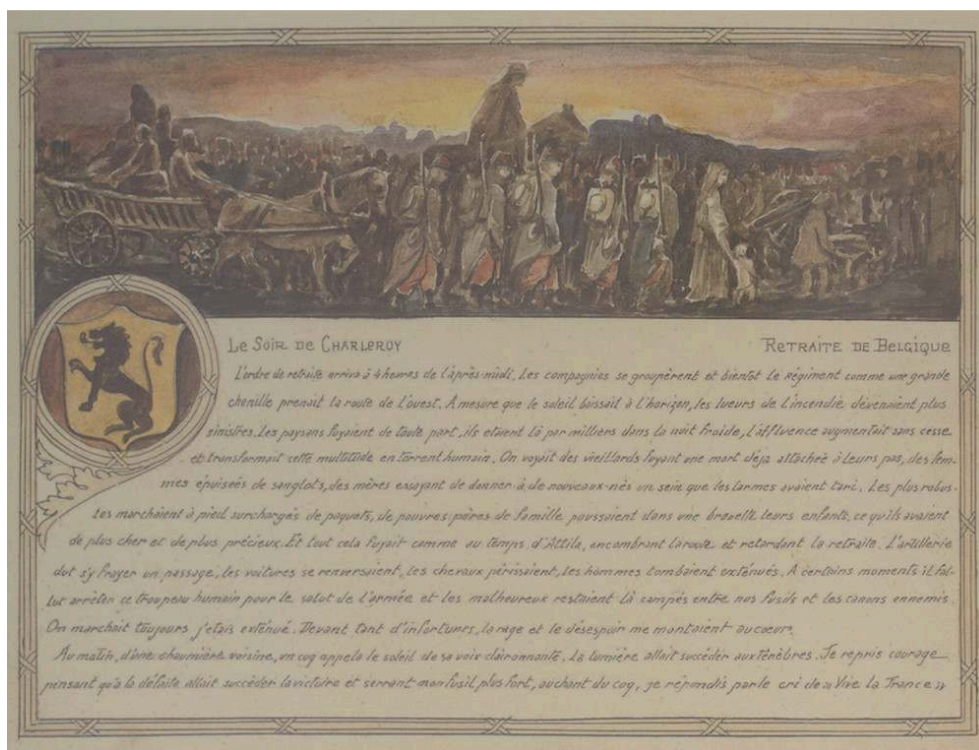 Le Soir de Charleroy
Retraite de Belgique
L'ordre de retraite arriva à 4 heures de l'après-midi. Les compagnies se groupèrent et bientôt le régiment comme une grande
chenille prenait la route de l'ouest. A mesure que le soleil baissait à l'horizon, les lueurs de l'incendie devenaient plus
sinistres. Les paysans fuyaient de toute part, ils étaient là par milliers dans la nuit froide, l'affluence augmentait sans cesse
et transformait cette multitude en torrent humain. On voyait des vieillards fuyant une mort déja attachée à leurs pas, des fem-
mes épuisées de sanglots, des mères essayant de donner à de nouveaux-nés un sein que les larmes avaient tari. Les plus robus-
tes marchaient à pied surchargés de paquets, de pauvres pères de famille poussaient dans une brouette leurs enfants, ce qu'ils avaient
de plus cher et de plus précieux. Et tout cela fuyait comme au temps d'Attila, encombrant la route et retardant la retraite. L'artillerie
dut s'y frayer un passage, les voitures se renversaient, les chevaux périssaient, les hommes tombaient exténués. A certains moments il fal-
lut arrêter ce troupeau humain pour le salut de l'armée et les malheureux restaient là campés entre nos fusils et les canons ennemis.
On marchait toujours j'étais exténué. Devant tant d'infortunes, la rage et le désespoir me montaient au cœur.
Au matin, d'une chaumière voisine, un coq appela le soleil de sa voix claironnante. La lumière allait succéder aux ténèbres. Je repris courage
pensant qu'à la défaite allait succéder la victoire et serrant mon fusil plus fort, au chant du coq, je répondis par le cri de « Vive la France »